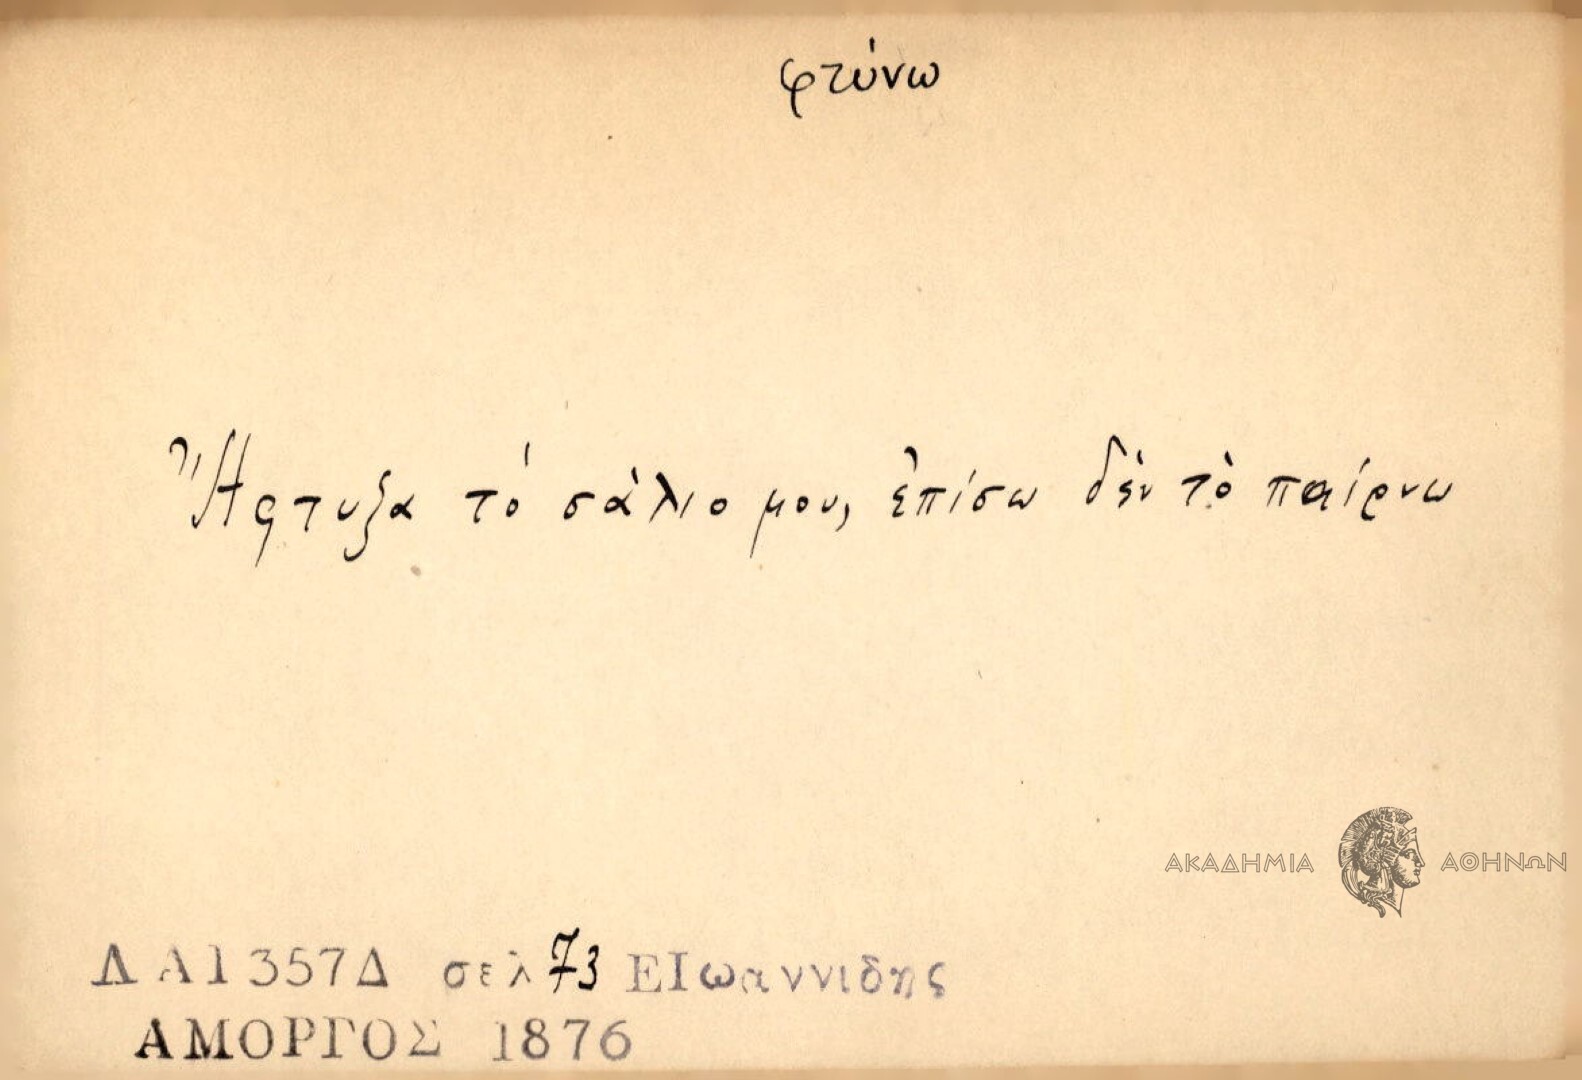 φτύνω
Ἤφτυξα τό σάλιο μου, ἐπίσω δὲν τὸ παίρνω
ΑΚΑΔΗΜΙΑ ΑΘΗΝΩΝ
ΔΑ1357Δ σελ 73 ΕΙωαννιδης
ΑΜΟΡΓΟΣ 1876